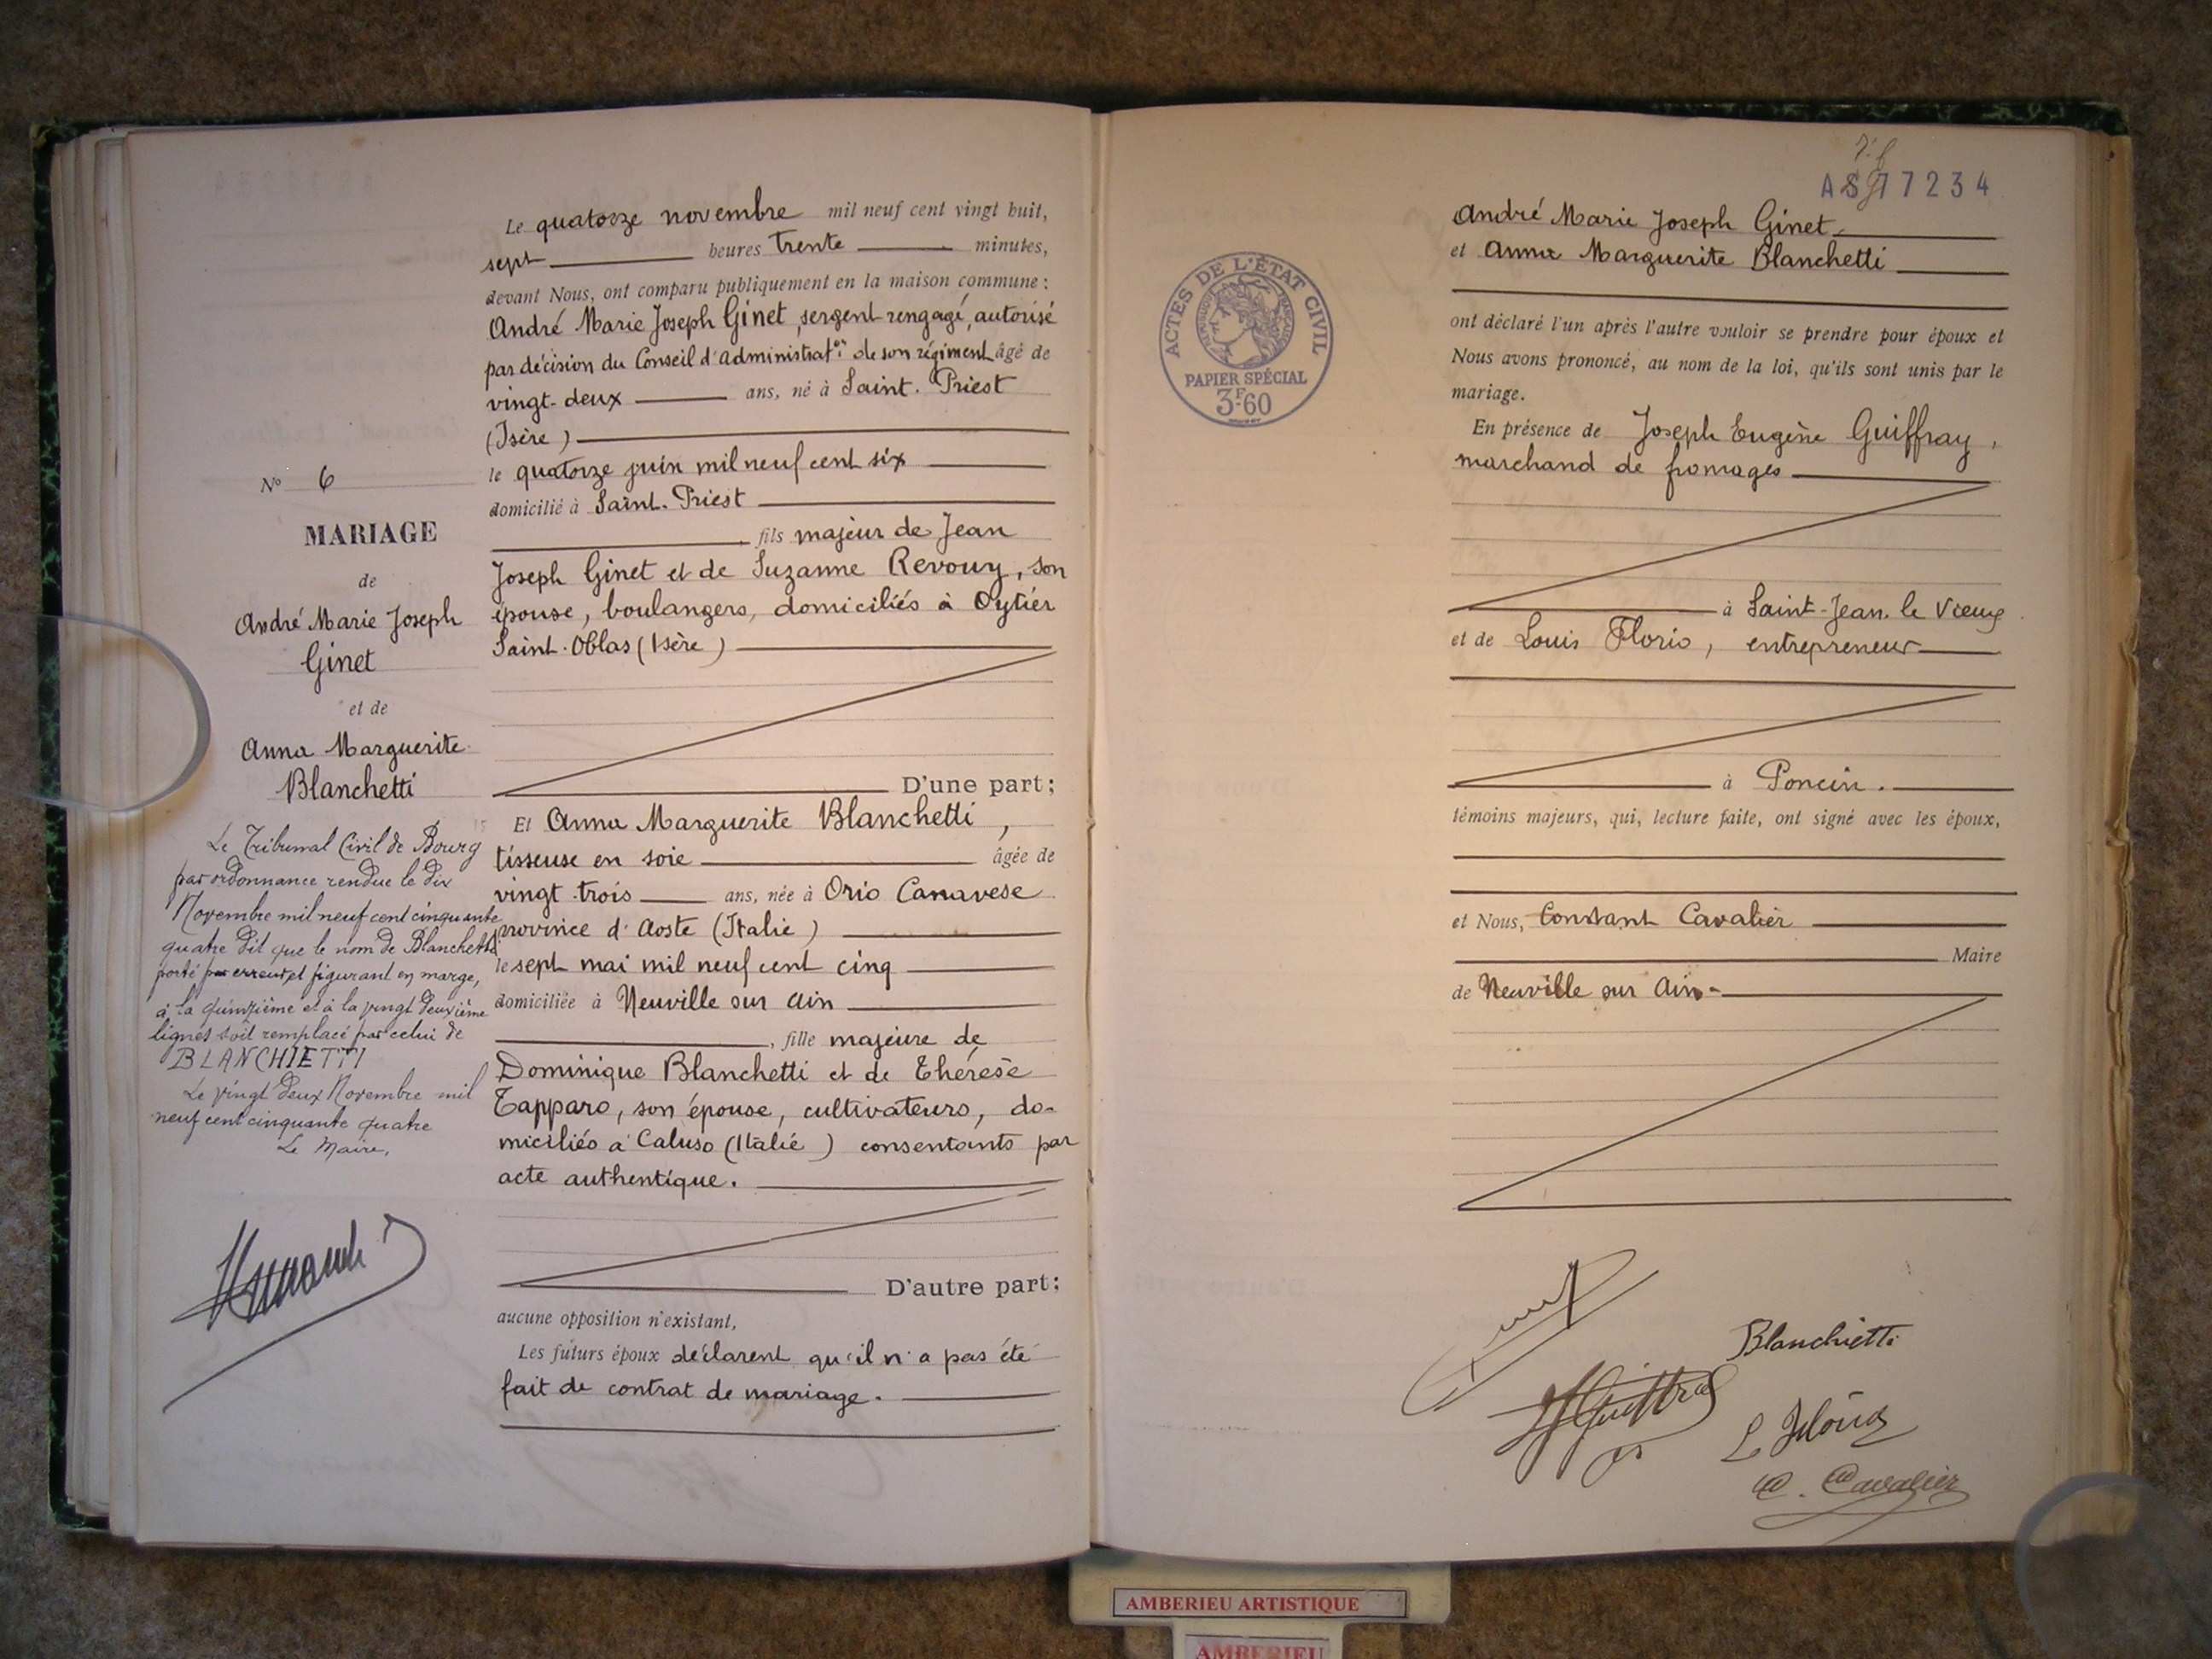 Le quatorze novembre mil neuf cent vingt huit,
sept heures trente minutes,
devant Nous, ont comparu publiquement en la maison commune :
André Marie Joseph Ginet, sergent rengagé, autorisé
par décision du Conseil d'administrat.on de son régiment âgé de
vingt-deux ans, né à Saint-Priest
(Isère)
le quatorze juin mil neuf cent six
domicilié à Saint-Priest
, fils majeur de Jean
Joseph Ginet et de Suzanne Revouy, son
épouse, boulangers, domiciliés à Oytier
Saint-Oblas (Isère)
D'une part;
Et Anna Marguerite Blanchetti,
tisseuse en soie âgée de
vingt-trois ans, née à Orio Canavese
province d'Aoste (Italie)
le sept mai mil neuf cent cinq
domiciliée à Neuville sur Ain
, fille majeure de
Dominique Blanchetti et de Thérèse
Tapparo, son épouse, cultivateurs, do-
miciliés à Caluso (Italie) consentants par
acte authentique.
D'autre part;
aucune opposition n'existant,
Les futurs époux déclarent qu'il n'a pas été
fait de contrat de mariage.
No 6
MARIAGE
de
André Marie Joseph
Ginet
et de
Anna Marguerite
Blanchetti
Le Tribunal Civil de Bourg
par ordonnance rendue le dix
Novembre mil neuf cent cinquante
quatre dit que le nom de Blanchetti
porté par erreur et figurant en marge,
à la quinzième et à la vingt deuxième
lignes soit remplacé par celui de
BLANCHIETTI
Le vingt deux Novembre mil
neuf cent cinquante quatre
Le Maire,
77234
ACTES DE L'ÉTAT CIVIL
RÉPUBLIQUE FRANÇAISE
PAPIER SPÉCIAL
3F.60
André Marie Joseph Ginet
et Anna Marguerite Blanchetti
ont déclaré l'un après l'autre vouloir se prendre pour époux et
Nous avons prononcé, au nom de la loi, qu'ils sont unis par le
mariage.
En présence de Joseph Eugène Guiffray,
marchand de fromages
à Saint-Jean-le Vieux
et de Louis Florio, entrepreneur
à Poncin.
témoins majeurs, qui, lecture faite, ont signé avec les époux,
et Nous, Constant Cavalier
Maire
de Neuville sur Ain
Blanchietti
C. Cavalier
AMBERIEU ARTISTIQUE
AMBERIEU